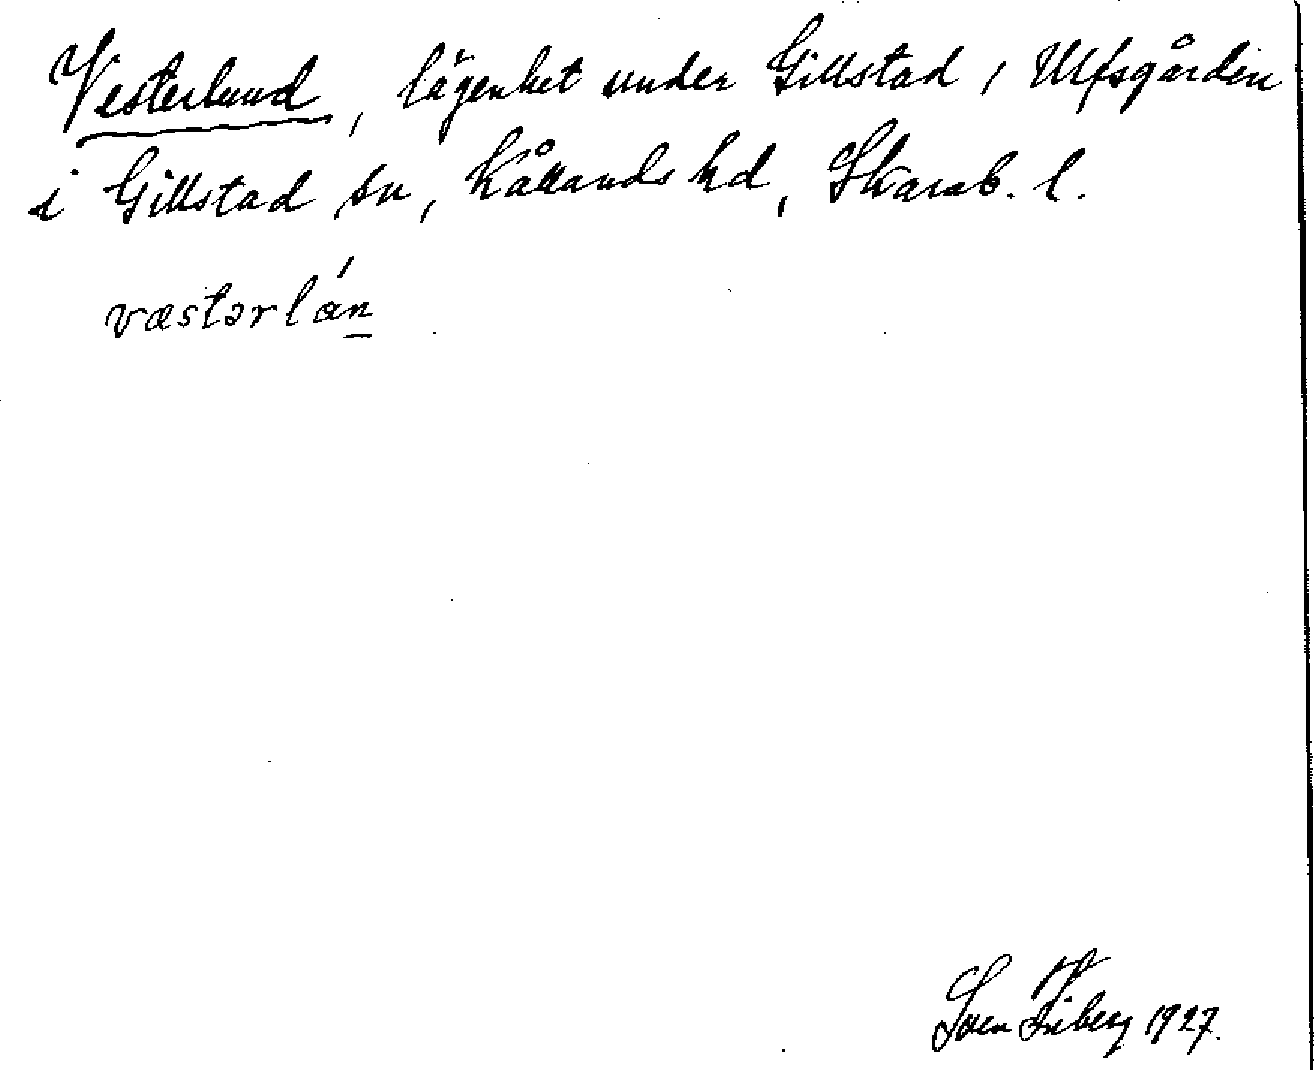 Vesterlund, lägenhet under Gillstad, Ulfsgården
i Gillstad sn, Kållands hd, Skarab. l.
væstərlán
Sven Friberg 1927.